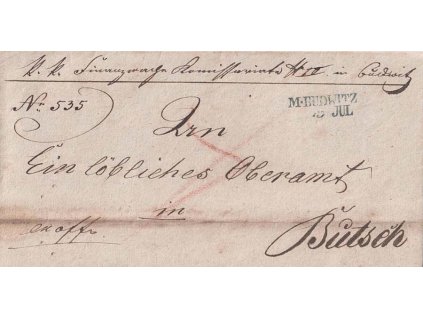 K. K. Finanzwache Komissariats № IV in Budwitz
No. 535
M:BUDWITZ
JUL
An
Ein löbliches Oberamt
in
Butsch
ex offo.